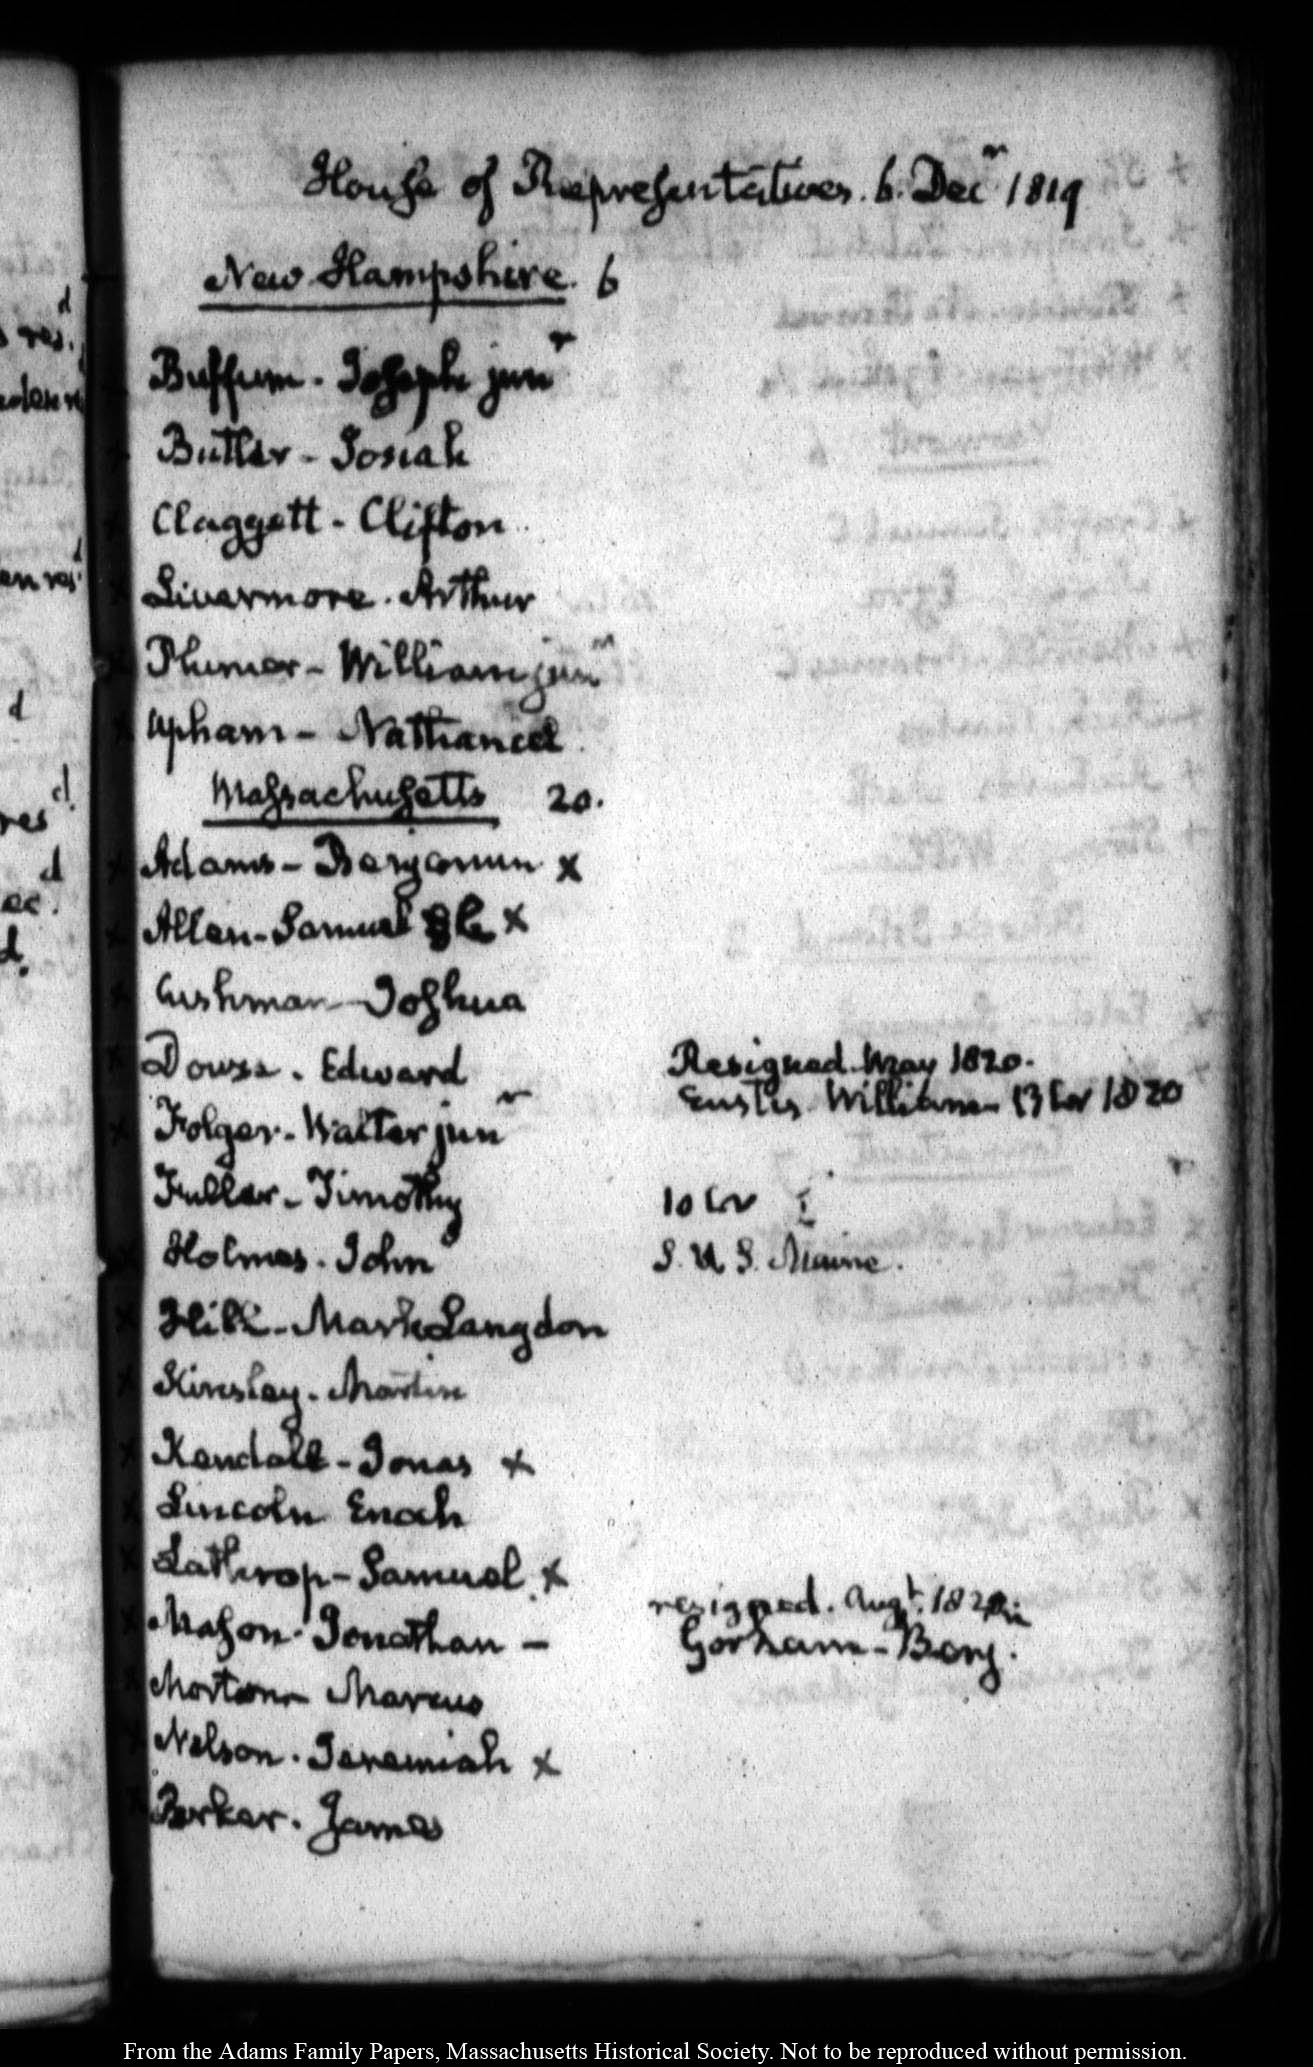 House of Representatives. 6. Decr 1819
New Hampshire. 6
Buffum. Joseph junr
Butler - Josiah
Claggett - Clifton
x Livermore. Arthur
x Plumer - William junr
x Upham - Nathaniel
Massachusetts 20.
x Adams - Benjamin x
x Allen - Samuel C x
x Cushman - Joshua
x Dowse. Edward Resigned. May 1820.
Eustis. William - 13 Nov 1820
x Folger - Walter junr
Fuller - Timothy
x Holmes. John S. U. S. Maine.
x Hill - Mark Langdon
x Kinsley. Martin
x Kendall - Jonas x
x Lincoln Enoch
x Lathrop - Samuel. x
x Mason. Jonathan - resigned. Augt. 1820
Gorham - Benj.
Morton Marcus
Nelson. Jeremiah x
x Parker. James
res.d
d
res d
d
d.
From the Adams Family Papers, Massachusetts Historical Society. Not to be reproduced without permission.